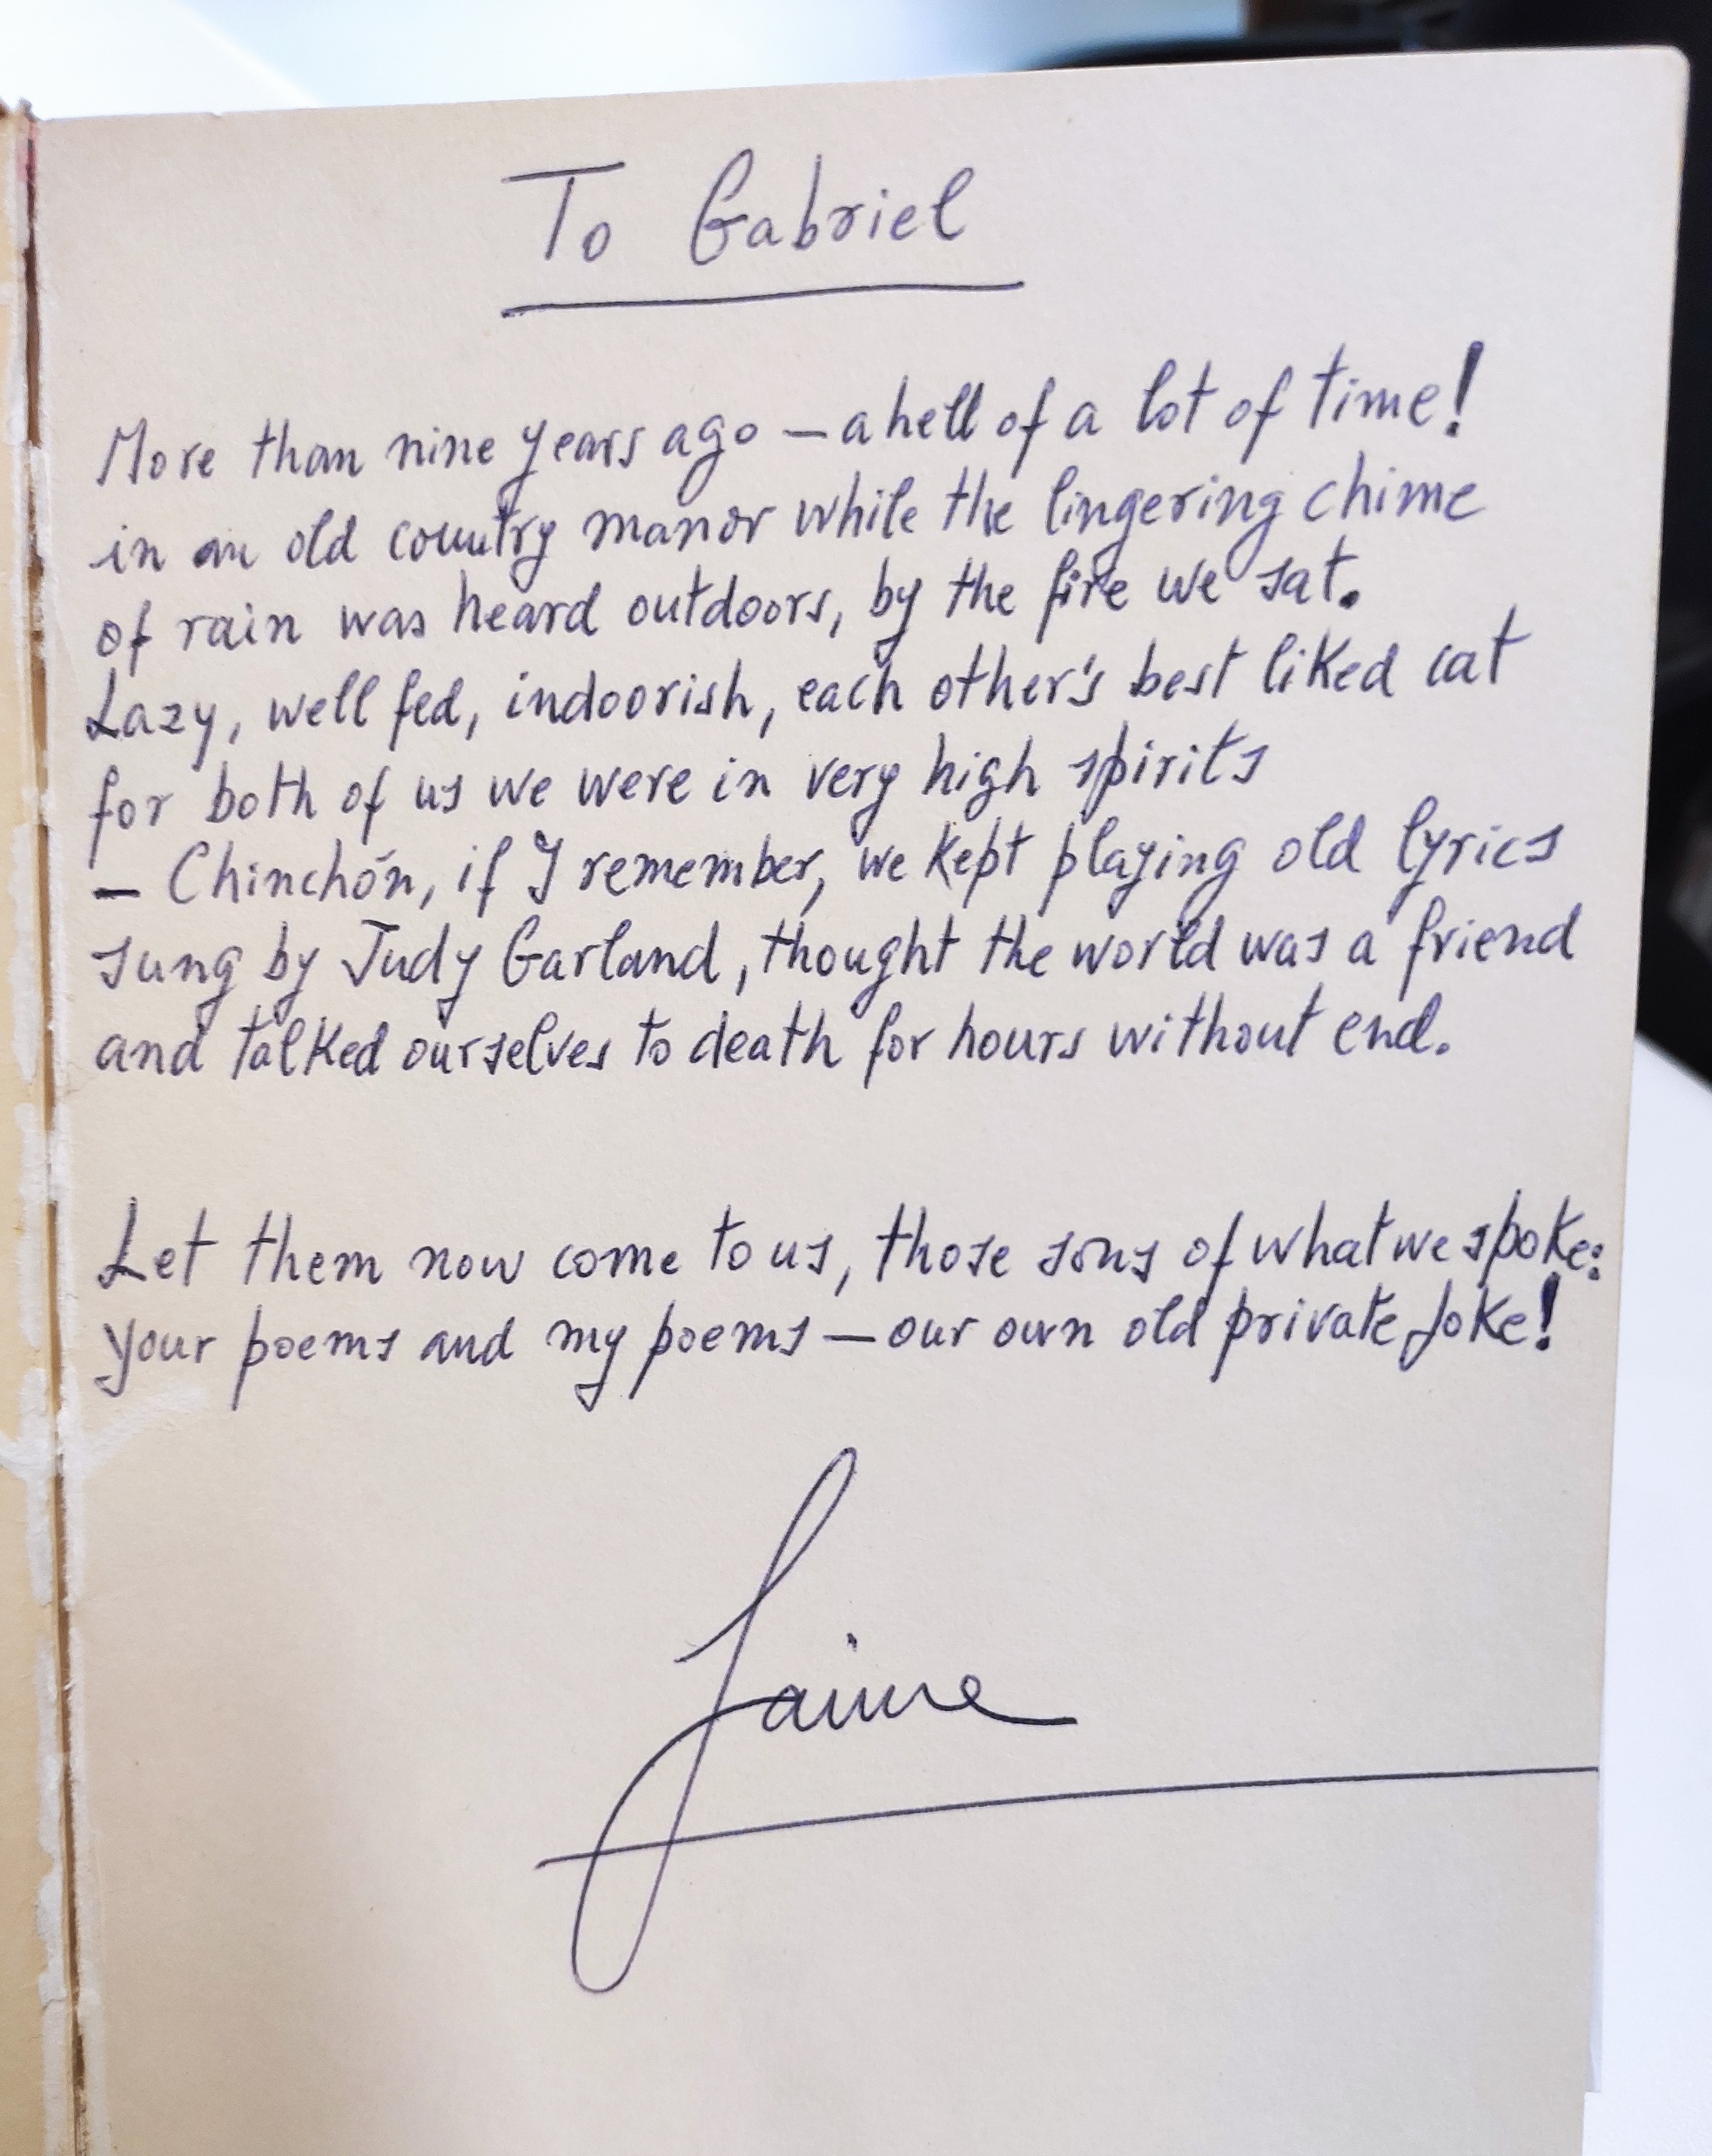 To Gabriel
More than nine years ago — a hell of a lot of time!
in an old country manor while the lingering chime
of rain was heard outdoors, by the fire we sat.
Lazy, well fed, indoorish, each other's best liked cat
for both of us we were in very high spirits
— Chinchón, if I remember, we kept playing old lyrics
sung by Judy Garland, thought the world was a friend
and talked ourselves to death for hours without end.
Let them now come to us, those sons of what we spoke:
Your poems and my poems — our own old private joke!
Jaime